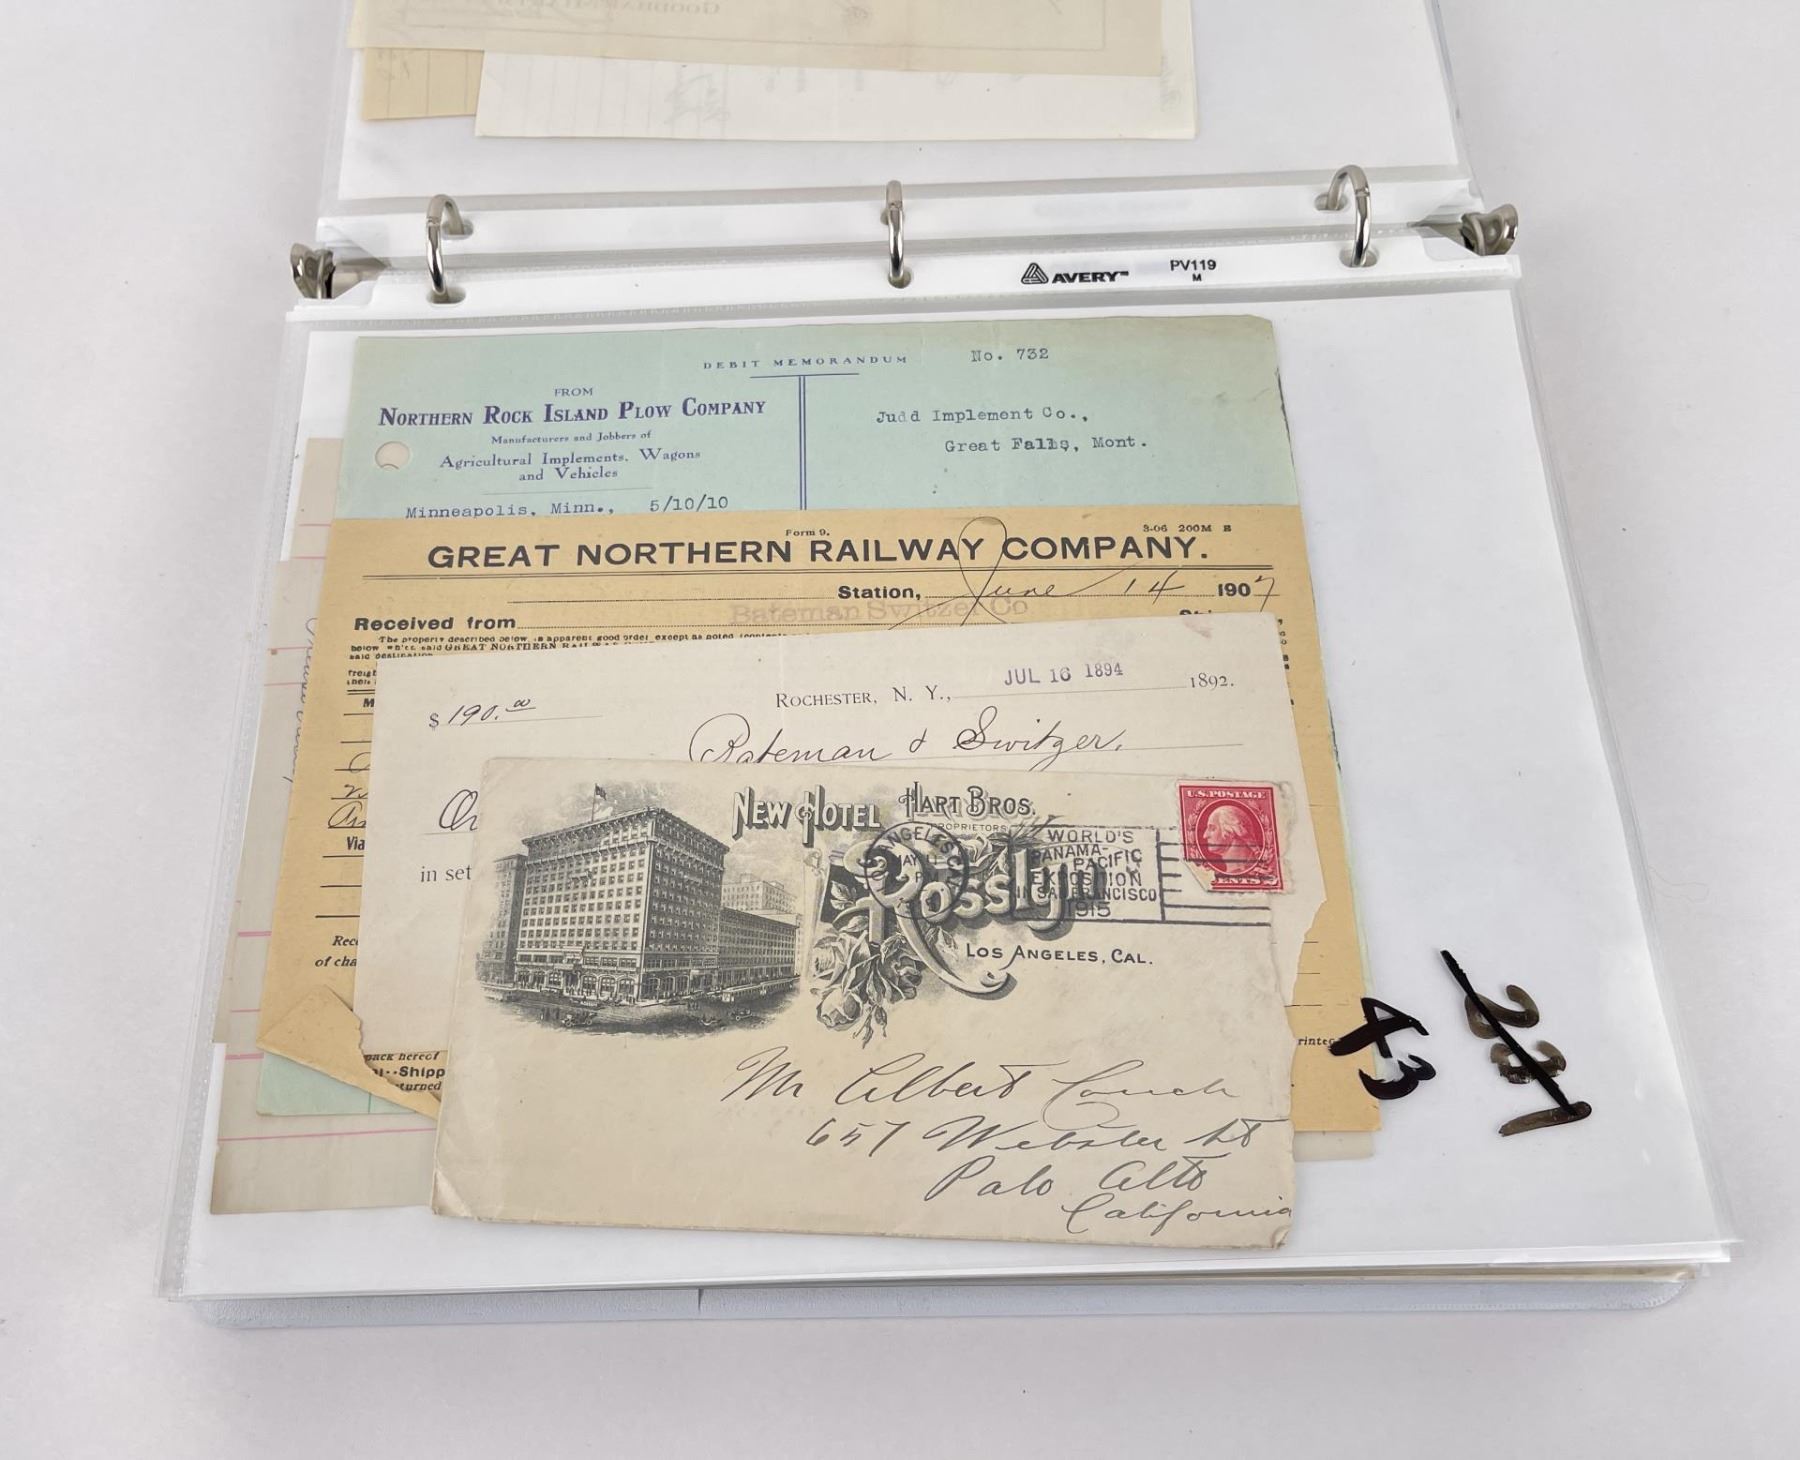 AVERY™ PV119
M
DEBIT MEMORANDUM No. 732
FROM
NORTHERN ROCK ISLAND PLOW COMPANY
Manufacturers and Jobbers of
Agricultural Implements, Wagons
and Vehicles
Minneapolis, Minn., 5/10/10
Judd Implement Co.,
Great Falls, Mont.
Form 9. 3-06 200M B
GREAT NORTHERN RAILWAY COMPANY.
Station, June 14 1907
Received from Bateman Switzer Co
The property described below, in apparent good order, except as noted
below said GREAT NORTHERN
said destination
M
Via
of cha
pack hereof
Shipp
$ 190.00 ROCHESTER, N. Y., JUL 16 1894 1892.
Bateman & Switzer,
Or
in set
NEW HOTEL HART BROS.
PROPRIETORS
Rosslyn
LOS ANGELES, CAL.
LOS ANGELES CAL
MAY
WORLD'S
PANAMA-
PACIFIC
EXPOSITION
IN SAN FRANCISCO
1915
U.S. POSTAGE
CENTS 2
Mr Albert Couch
657 Webster St
Palo Alto
California
43